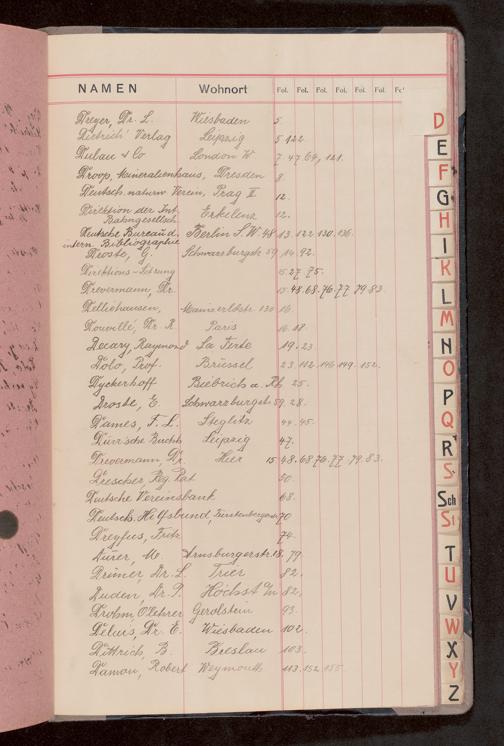 NAMEN Wohnort Fol. Fol. Fol. Fol. Fol. Fol. Fol
Dreyer, Dr. L. Wiesbaden 5
Dietrich' Verlag Leipzig 5 122
Dulau & Co London W 7 47 64, 121.
Droop, Mineralienhaus, Dresden 8
Deutsch. naturw Verein, Prag II 12.
Direktion der Int. Erkelenz 12.
Bohrgesellsch.
Deutsche Bureau d. Berlin S.W. 48 13. 122. 130. 136.
intern. Bibliographie
Droste, G. Schwarzburgstr 59 14. 92.
Direktions-Sitzung 15 27. 75.
Drevermann, Dr. 15. 48. 68. 76. 77 79. 83.
Delliehausen, Mainzerldstr. 130 16
Douvillé, Dr. R. Paris 16. 18.
Decary, Raymond La Ferté 19. 23
Dolo, Prof. Brüssel 23. 112. 146 149. 152.
Dyckerhoff Biebrich a. Rh 25.
Droste, E Schwarzburgstr 59. 28.
Dames, F. L. Steglitz 44. 45.
Dürr'sche Buchh Leipzig 47.
Drevermann, Dr. Hier 15 48. 68 76. 77. 79. 83.
Drescher, Reg. Rat 50.
Deutsche Vereinsbank 68.
Deutsch. Hilfsbund, 70
Dreyfus, Fritz 74.
Dürer, M. Arnsburgerstr. 18, 79.
Dr. L. Trier 82.
Duden, Dr. P. Höchst a/M 82.
Drohm, O'lehrer Gerolstein 93.
Delius, Dr. E. Wiesbaden 102.
Dittrich, B. Breslau 103.
Damon, Robert Weymouth 113. 152 155.
D
E
F
G
H
I
K
L
M
N
O
P
Q
R
S
Sch
St
T
U
V
W
X
Y
Z